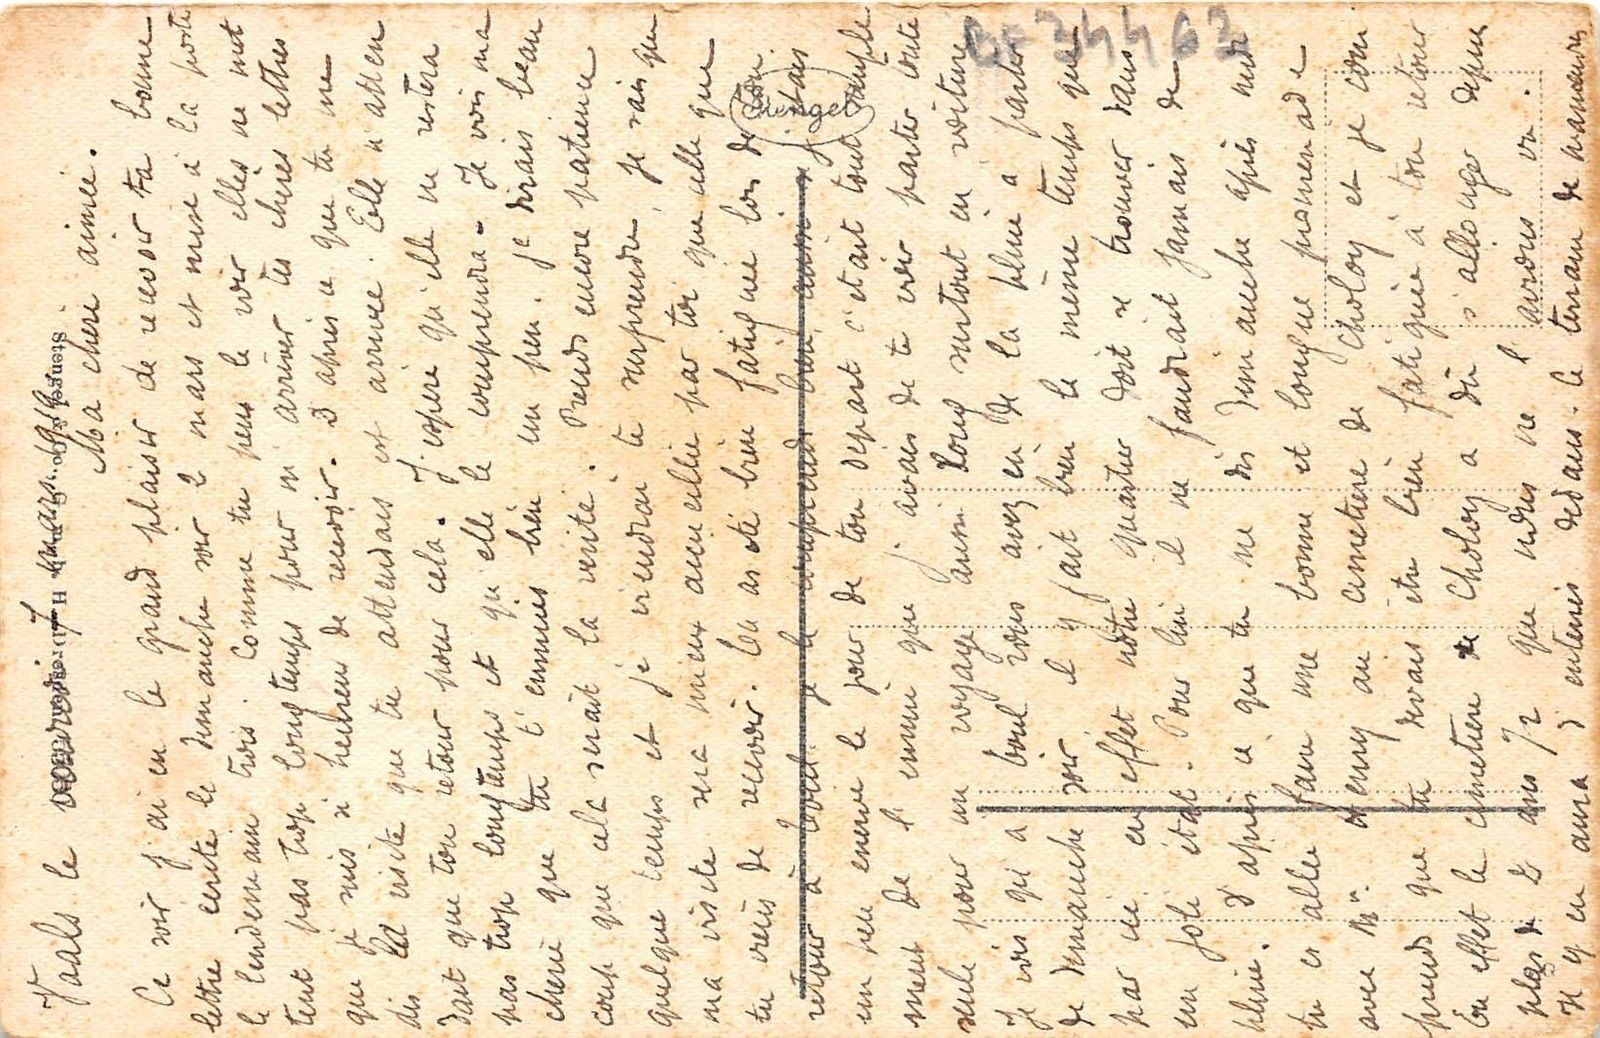 Vaals le 7 mars 1919
Ma cheri aimée.
Ce soir j'ai eu le grand plaisir de recevoir ta bonne
lettre ecrite le dimanche soir 2 mars et mise à la poste
le lendemain trois. Comme tu peux le voir elles ne met
tent pas trop longtemps pour m'arriver tes chères lettres
que je suis si heureu de recevoir. D apres ce que tu me
dis la visite que tu attendais est arrivee. Elle n atten
dait que ton retour pour cela. J'espère qu'elle ne restera
pas trop longtemps et qu elle le comprendra. Je vois ma
cheri que tu t'ennuies bien un peu. Je dirais beau
coup que cela serait la verité. Prends encore patience
quelque temps et je viendrai te surprendre, je sais que
ma visite sera mieux accueillie par toi que celle que
tu viens de recevoir. Tu as été bien fatiguée lors de ton
retour à Toul je le comprends bien aussi j'etais
un peu enervé le jour de ton depart c'etait tout simple
ment de l'ennui que j'avais de te voir partir toute
seule pour un voyage aussi long surtout en voiture
Je vois qu'à Toul vous avez eu de la pluie à partir
de dimanche soir il y fait bien le même temps que
par ici en effet notre quartier doit se trouver dans
un joli état. Pour lui il ne faudrait jamais de
pluie. D'après ce que tu me dis dimanche après midi
tu es allée faire une bonne et longue promenade
avec Mr Henry au cimetiere de Choloy et je com
prends que tu devais etre bien fatiguée à ton retour
En effet le cimetiere de Choloy a dû s'allonger depuis
plus de 2 ans 1/2 que nous ne l'avions vu.
Il y en aura d'enterrés dedans. Le terrain de manœuvres
Stengel
Stengel & Co., G. m. b. H.
34463